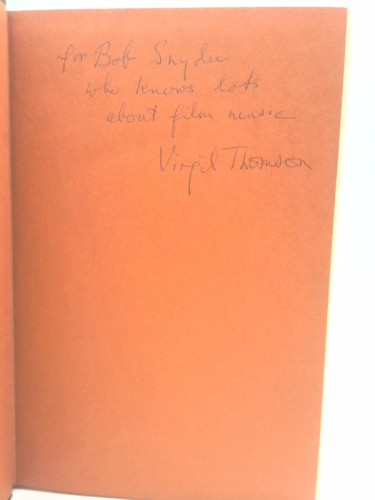 for Bob Snyder
who knows lots
about film music
Virgil Thomson